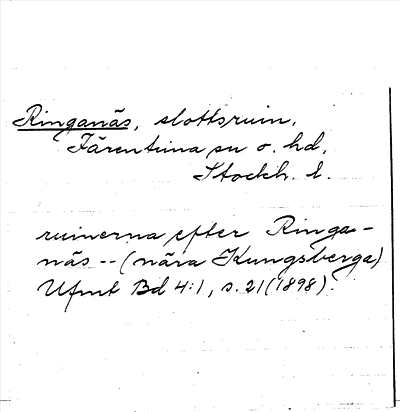 Ringanäs, slottsruin,
Färentuna sn o. hd,
Stockh. l.
ruinerna efter Ringa-
näs -- (nära Kungsberga)
Ufmt Bd 4:1, s. 21 (1898).